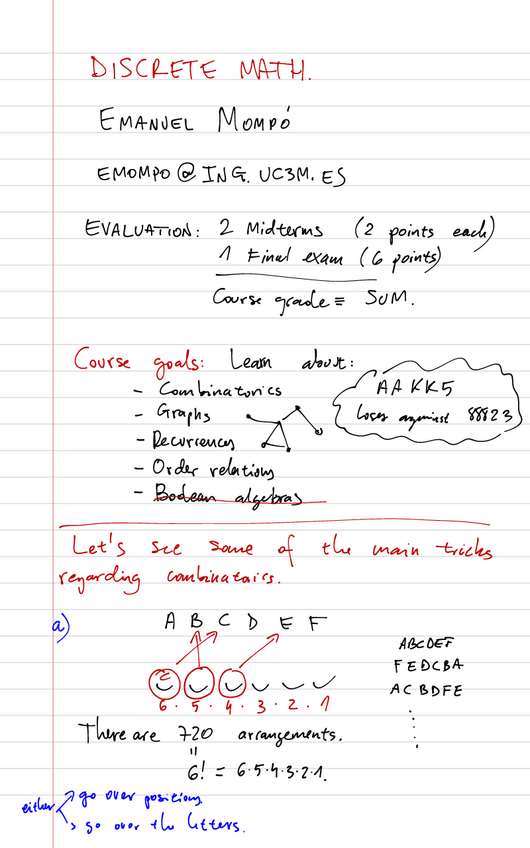 DISCRETE MATH.
EMANUEL MOMPÓ
EMOMPO@ING.UC3M.ES
EVALUATION: 2 Midterms (2 points each)
1 Final exam (6 points)
Course grade ≡ SUM.
Course goals: Learn about:
- Combinatorics
- Graphs
- Recurrences
- Order relations
- Boolean algebras
AAKK5
loses against 88823
Let's see some of the main tricks
regarding combinatorics.
a) A B C D E F
6 · 5 · 4 · 3 · 2 · 1
ABCDEF
FEDCBA
ACBDFE
There are 720 arrangements.
"
6! = 6·5·4·3·2·1.
either go over positions
go over the letters.